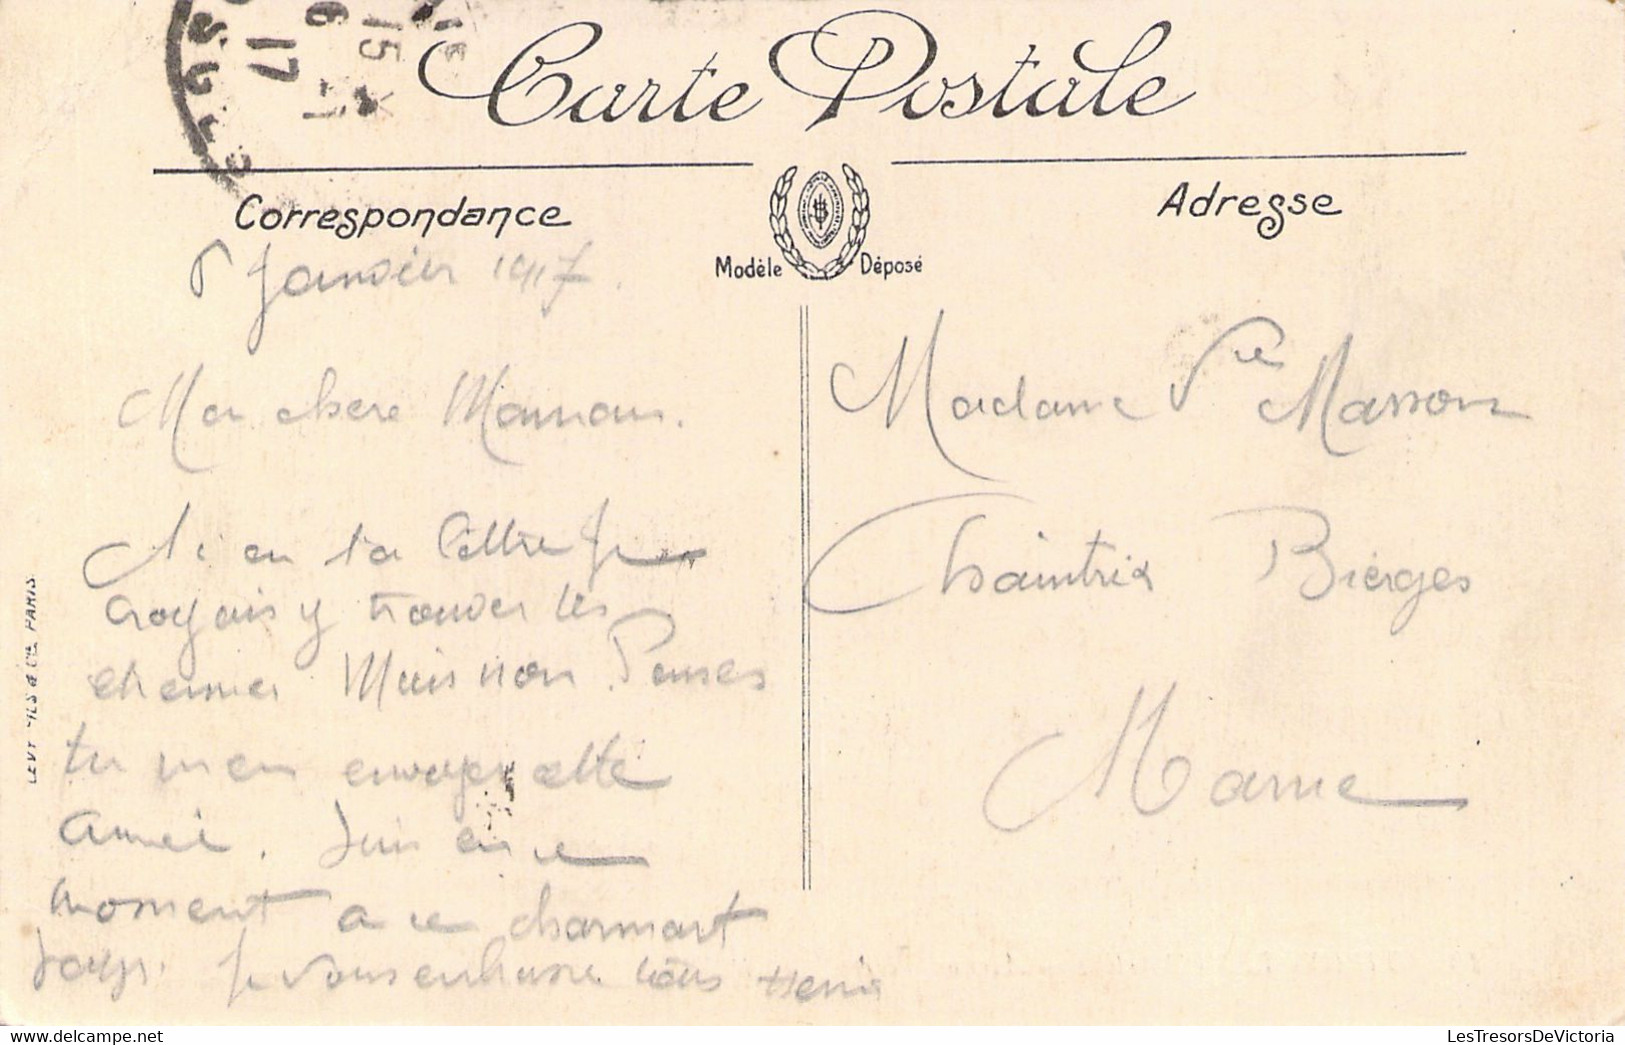 15
6 -1
17
Carte Postale
Correspondance
Adresse
Modèle Déposé
6 Janvier 1917.
Ma chère Maman.
Ai eu ta lettre Je
croyais y trouver les
Mais non. Penses
tu m'en envoyer cette
année. Suis en ce
moment a ce charmant
pays. Je vous embrasse tous
Madame Vve Masson
Chaintrix Bierges
Marne
LEVY FILS & Cie PARIS.
LesTresorsDeVictoria.com